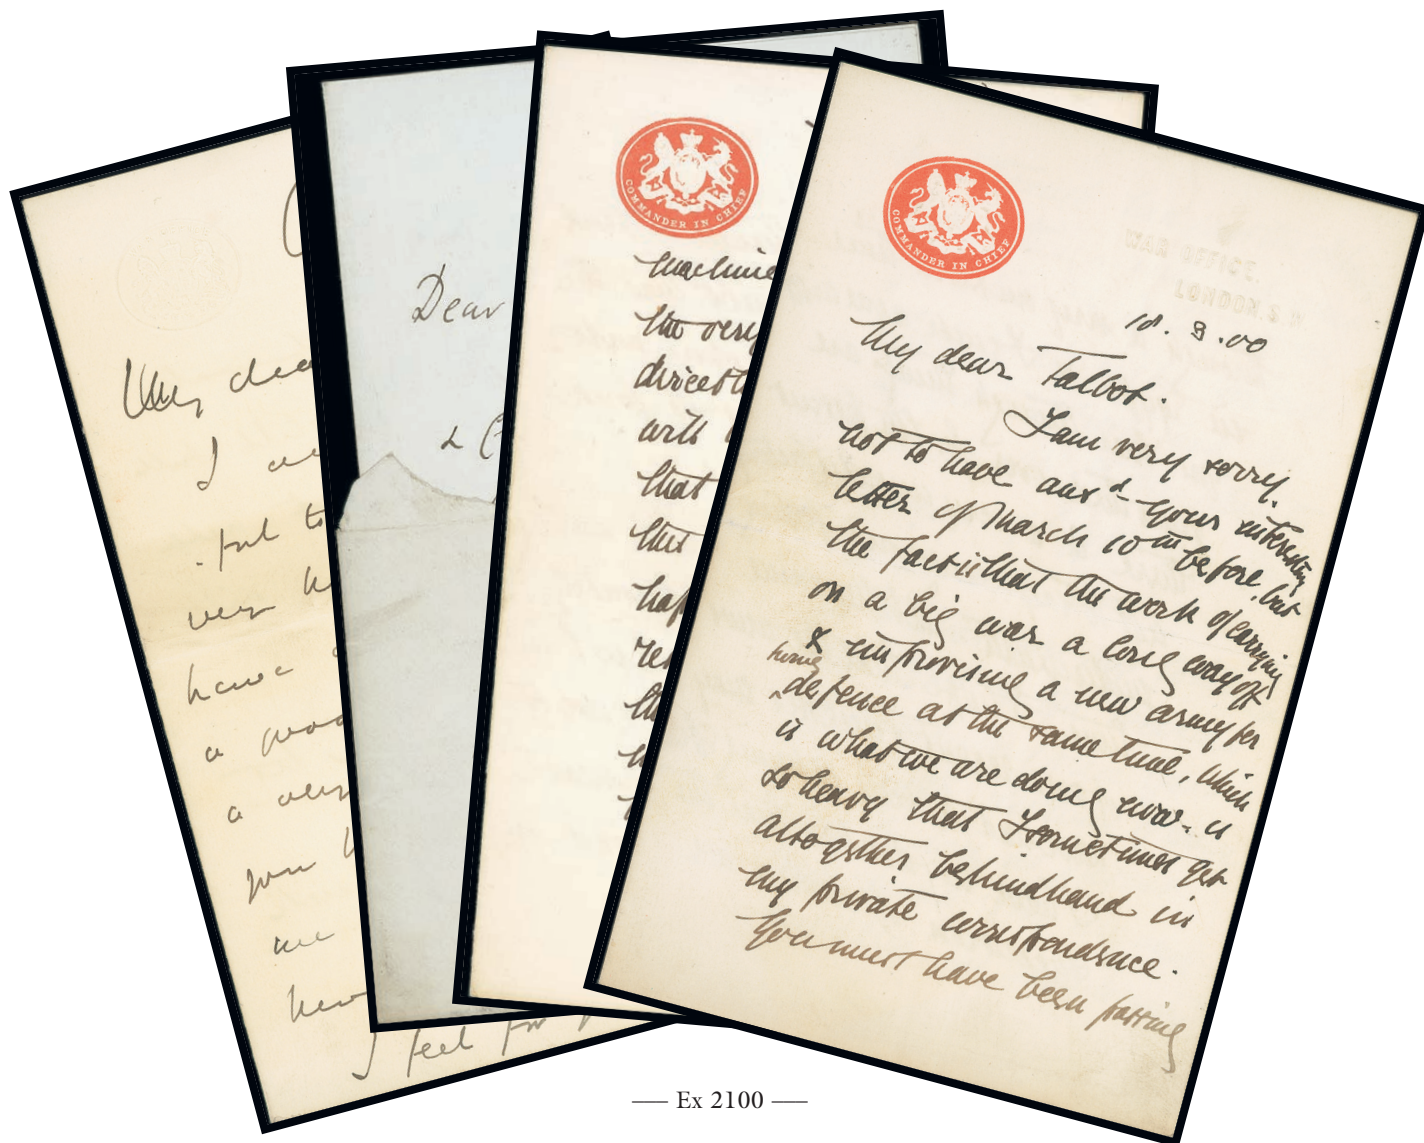 My dea
I
put to
very
have
a good
a very
you
are
hav
I feel for
Dear
&
COMMANDER IN CHIEF
machine
the very
direct
with
that
that
hap
COMMANDER IN CHIEF
WAR OFFICE
LONDON S.W
18. 3.00
My dear Talbot.
I am very sorry
not to have ansd your interesting
letter of March 10th before, but
the fact is that the work of carrying
on a big war a long way off
& improvising a new army for
home
defence at the same time, which
is what we are doing now - is
so heavy that I sometimes get
altogether behindhand in
my private correspondence.
You must have been passing
— Ex 2100 —